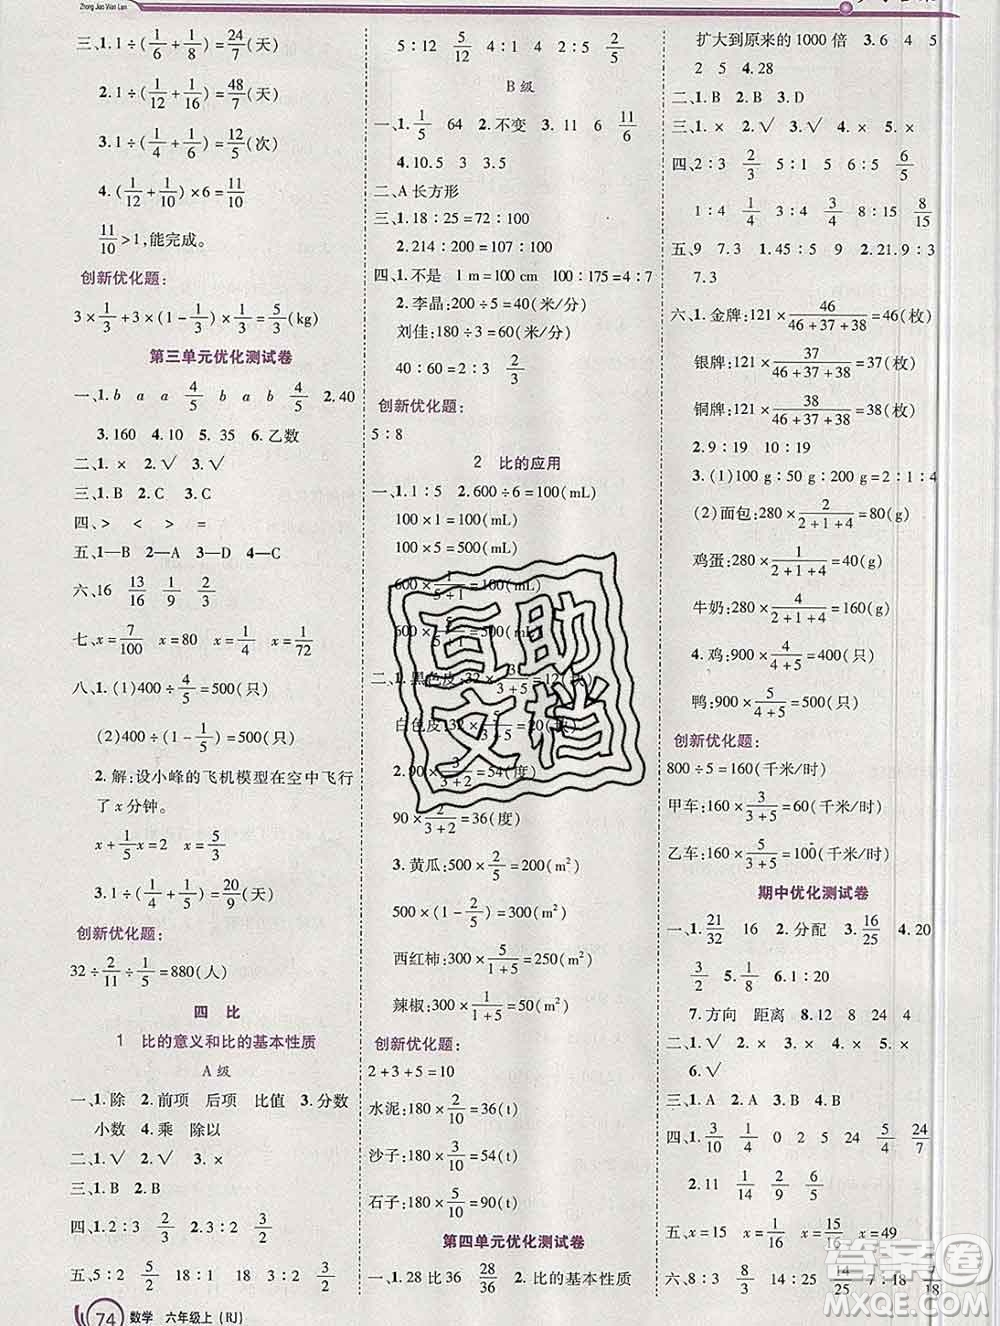 Zhong Jiao Wan Lan
三、1.1÷(1/6+1/8)=24/7(天)
2.1÷(1/12+1/16)=48/7(天)
3.1÷(1/4+1/6)=12/5(次)
4.(1/12+1/10)×6=11/10
11/10>1,能完成。
创新优化题:
3×1/3+3×(1-1/3)×1/3=5/3(kg)
第三单元优化测试卷
一、1.b a a 4/5 b a b 4/5 2.40
3.160 4.10 5.35 6.乙数
二、1.× 2.√ 3.√ 4.× 5.√
三、1.A 2.A 3.B 4.B
四、> < > =
五、1—B 2—A 3—D 4—C
六、16 13/16 1/9 8/9
七、x=7/100 x=80 x=1/4 x=1/72
八、1.(1)400÷4/5=500(只)
(2)400÷(1-1/5)=500(只)
2.解:设小峰的飞机模型在空中飞行
了x分钟。
x+1/5x=2 x=5/3
3.1÷(1/4+1/5)=20/9(天)
创新优化题:
32÷2/11÷1/5=880(人)
四 比
1 比的意义和比的基本性质
A级
一、1.除 2.前项 后项 比值 3.分数
小数 4.乘 除以
二、1.√ 2.√ 3.×
三、1.B 2.B
四、1.2:3 2/3 2.3:2 3/2
五、5:2 5/2 18:1 18 2:3 2/3
74 数学 六年级上(RJ)
5:12 5/12 4:1 4 5:2 5/2
B级
一、1.1/5 64 2.不变 3.11 6 11/6
4.10.5 3 3.5
二、A 长方形
三、1.18:25=72:100
2.214:200=107:100
四、1.不是 1 m=100 cm 100:175=4:7
2.李晶:200÷5=40(米/分)
刘佳:180÷3=60(米/分)
40:60=2:3 2/3
创新优化题:
5:8
2 比的应用
一、1.1:5 2.600÷6=100(mL)
100×1=100(mL)
100×5=500(mL)
600×1/(5+1)=100(mL)
600×5/(5+1)=500(mL)
二、1.黑色皮:32×3/(3+5)=12(块)
白色皮:32×5/(3+5)=20(块)
2.90×3/(3+2)=54(度)
90×2/(3+2)=36(度)
3.黄瓜:500×2/5=200(m²)
500×(1-2/5)=300(m²)
西红柿:300×5/(1+5)=250(m²)
辣椒:300×1/(1+5)=50(m²)
创新优化题:
2+3+5=10
水泥:180×2/10=36(t)
沙子:180×3/10=54(t)
石子:180×5/10=90(t)
第四单元优化测试卷
一、1.28比36 28/36 2.比的基本性质
扩大到原来的1000倍 3.6 4 5
2 5 4.28
二、1.B 2.B 3.D
三、1.× 2.√ 3.√ 4.× 5.×
四、2:3 2/3 5:1 5 6:5 6/5
1:4 1/4 3:4 3/4 8:15 8/15
五、9 7.3 1.45:5 9 2.21.9:3
7.3
六、1.金牌:121×46/(46+37+38)=46(枚)
银牌:121×37/(46+37+38)=37(枚)
铜牌:121×38/(46+37+38)=38(枚)
2.9:19 10:19
3.(1)100 g:50 g:200 g=2:1:4
(2)面包:280×2/(2+1+4)=80(g)
鸡蛋:280×1/(2+1+4)=40(g)
牛奶:280×4/(2+1+4)=160(g)
4.鸡:900×4/(4+5)=400(只)
鸭:900×5/(4+5)=500(只)
创新优化题:
800÷5=160(千米/时)
甲车:160×3/(3+5)=60(千米/时)
乙车:160×5/(3+5)=100(千米/时)
期中优化测试卷
一、1.21/32 16 2.分配 3.16/25 4.20
3/2 5.1/8 6.1:20
7.方向 距离 8.12 8 24 4
二、1.√ 2.× 3.× 4.× 5.×
6.√
三、1.A 2.B 3.C 4.A
四、1.3/10 1/4 0 2 5/24 4/5 24/7
2.11 1/14 2/9 4/9
五、x=15 x=1/16 x=15/16 x=49
六、8:3 8/3 14:25 14/25 7:18 7/18
互助文档
答案圈
MXQE.COM